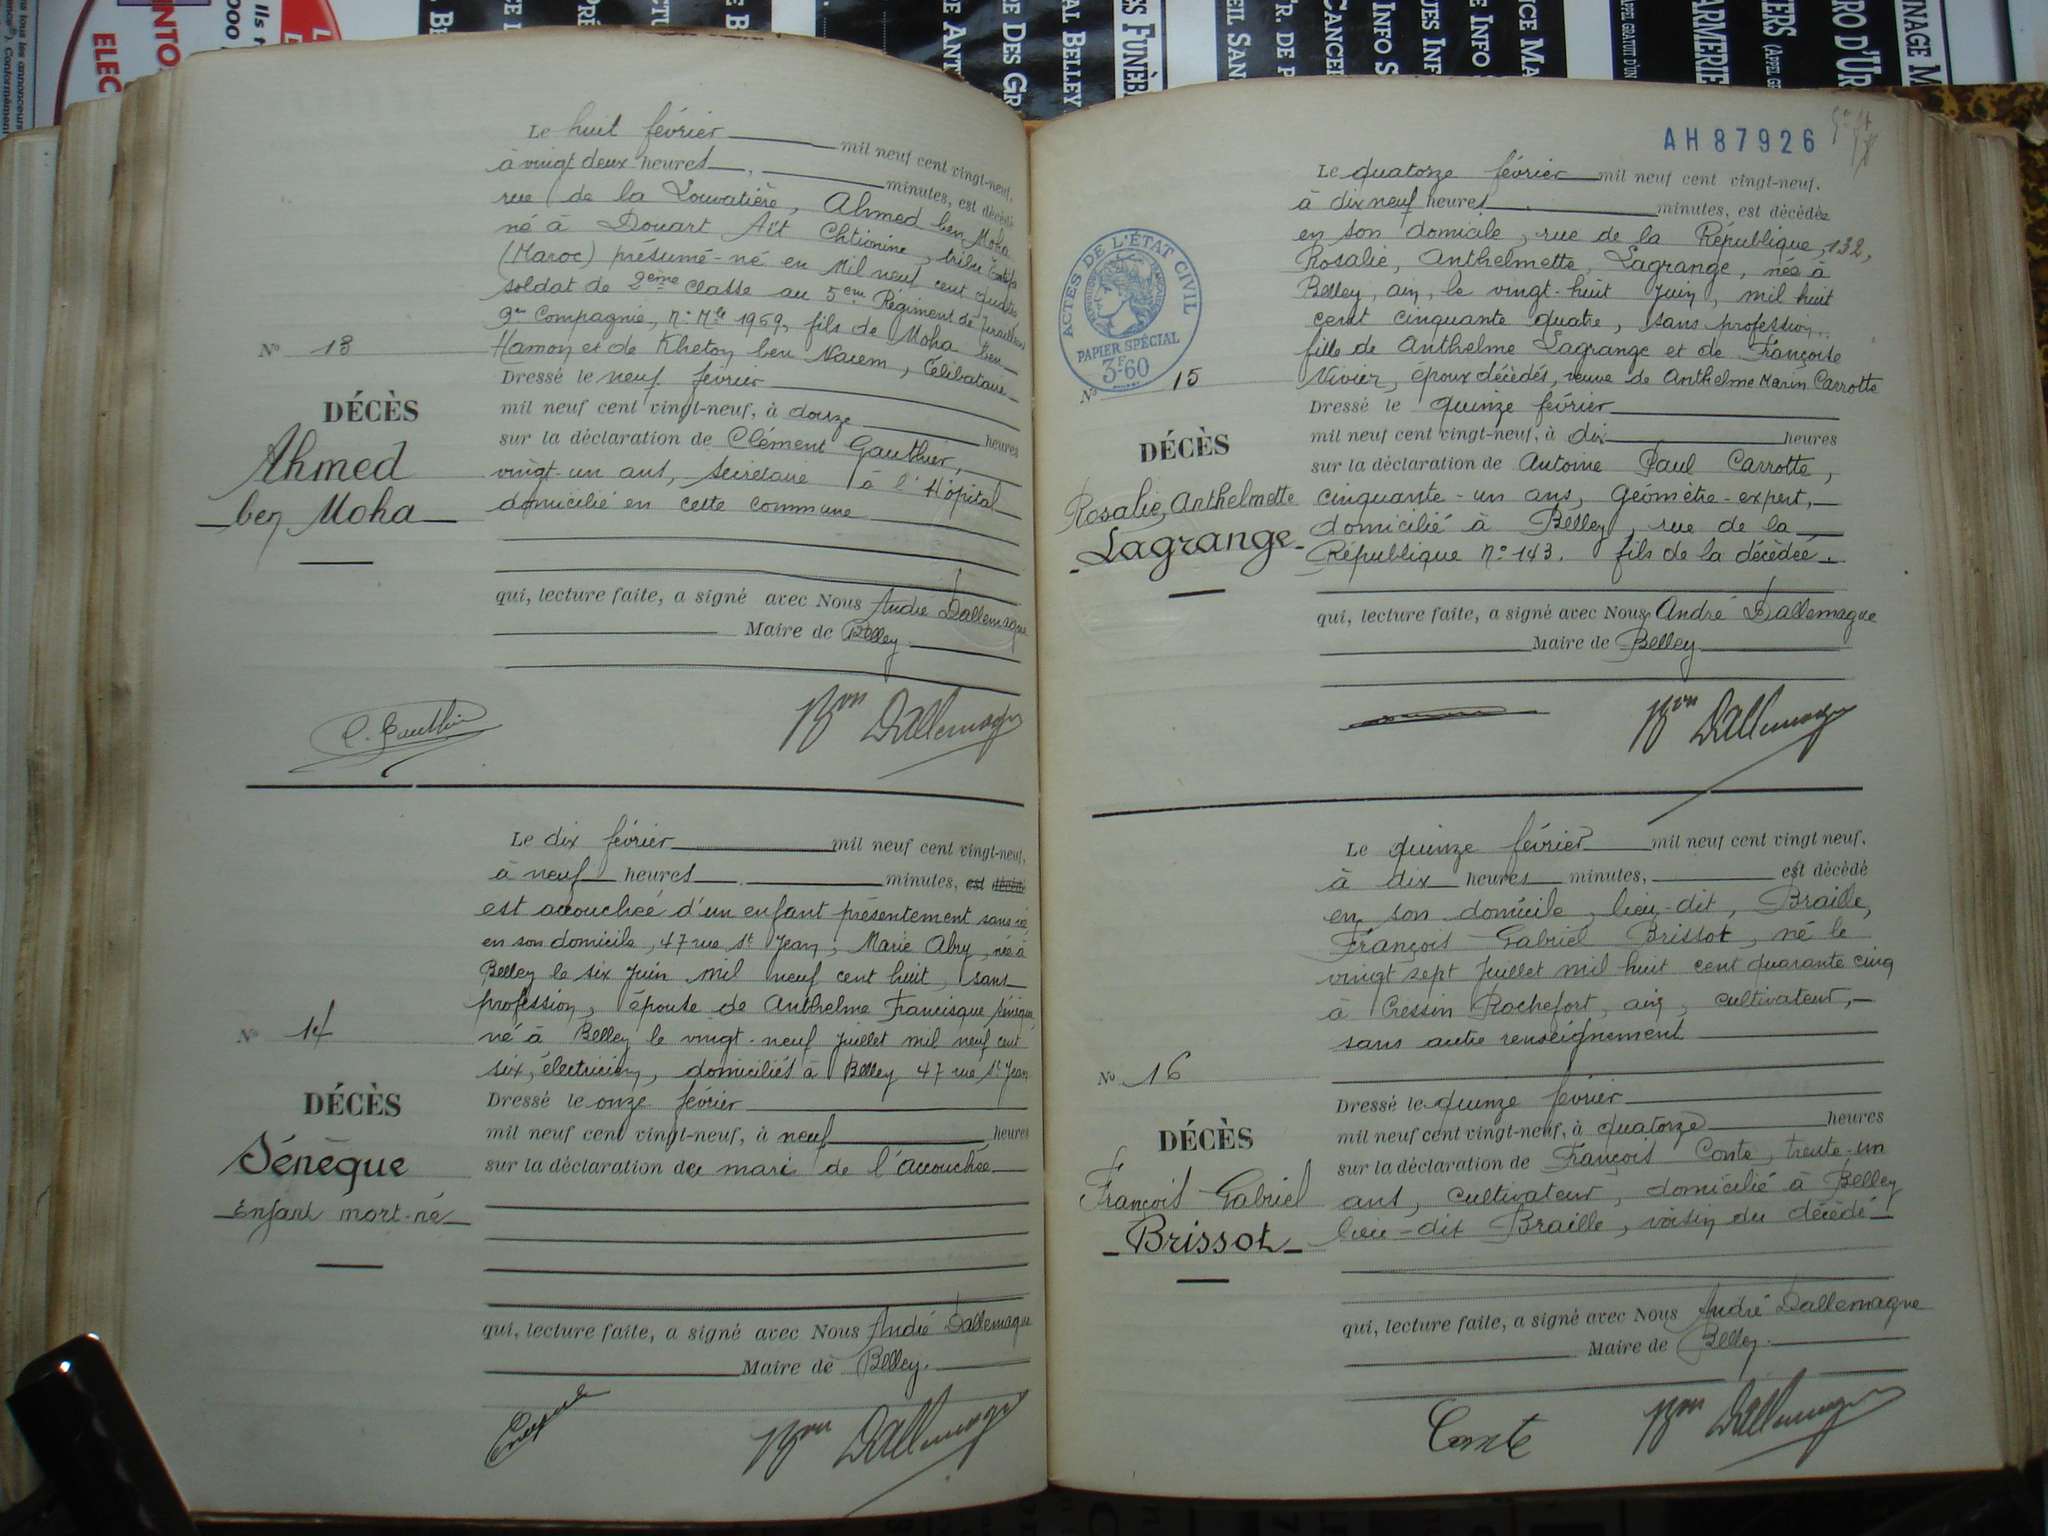 Le huit février mil neuf cent vingt-neuf,
à vingt deux heures, minutes, est décédé
rue de la Louvatière, Ahmed ben Moha
né à Douart Aït Chtimine, tribu
(Maroc) présumé né en Mil neuf cent quatre
soldat de 2ème classe au 5em Régiment de Tirailleurs
9em Compagnie, N° Mle 1969, fils de Moha ben
Hamon et de Kheton ben Nacem, Célibataire
N° 13
Dressé le neuf février
DÉCÈS
Ahmed
ben Moha
mil neuf cent vingt-neuf, à douze heures
sur la déclaration de Clément Gauthier,
vingt-un ans, secrétaire à l'Hôpital
domicilié en cette commune
qui, lecture faite, a signé avec Nous André Dallemagne
Maire de Belley
C. Gauthier
Bon Dallemagne
Le dix février mil neuf cent vingt-neuf,
à neuf heures minutes, est décédé
est accouchée d'un enfant présentement sans vie
en son domicile, 47 rue St Jean, Marie Abry, née à
Belley le six Juin mil neuf cent huit, sans
profession, épouse de Anthelme Francisque Sénèque,
né à Belley le vingt-neuf Juillet mil neuf cent
six, électricien, domiciliés à Belley 47 rue St Jean
N° 14
Dressé le onze février
DÉCÈS
Sénèque
Enfant mort-né
mil neuf cent vingt-neuf, à neuf heures
sur la déclaration du mari de l'accouchée
qui, lecture faite, a signé avec Nous André Dallemagne
Maire de Belley.
Bon Dallemagne
AH 87926
ACTES DE L'ÉTAT CIVIL
PAPIER SPÉCIAL
3F60
Le quatorze février mil neuf cent vingt-neuf.
à dix neuf heures minutes, est décédée
en son domicile, rue de la République, 132,
Rosalie, Anthelmette, Lagrange, née à
Belley, ain, le vingt-huit Juin, mil huit
cent cinquante quatre, sans profession.
fille de Anthelme Lagrange et de Françoise
Vivier, époux décédés, veuve de Anthelme Marin Carrotte
N° 15
Dressé le quinze février
DÉCÈS
Rosalie, Anthelmette
Lagrange
mil neuf cent vingt-neuf, à dix heures
sur la déclaration de Antoine Paul Carrotte,
cinquante-un ans, Géomètre-expert,
domicilié à Belley, rue de la
République N° 143. fils de la décédée.
qui, lecture faite, a signé avec Nous André Dallemagne
Maire de Belley
Bon Dallemagne
Le quinze février mil neuf cent vingt neuf.
à dix heures minutes, est décédé
en son domicile, lieu-dit, Braille,
François Gabriel Brissot, né le
vingt sept Juillet mil huit cent quarante cinq
à Cressin Rochefort, ain, cultivateur,
sans autre renseignement
N° 16
Dressé le quinze février
DÉCÈS
François Gabriel
Brissot
mil neuf cent vingt-neuf, à quatorze heures
sur la déclaration de François Conte, trente-un
ans, cultivateur, domicilié à Belley
lieu-dit Braille, voisin du décédé
qui, lecture faite, a signé avec Nous André Dallemagne
Maire de Belley.
Conte
Bon Dallemagne